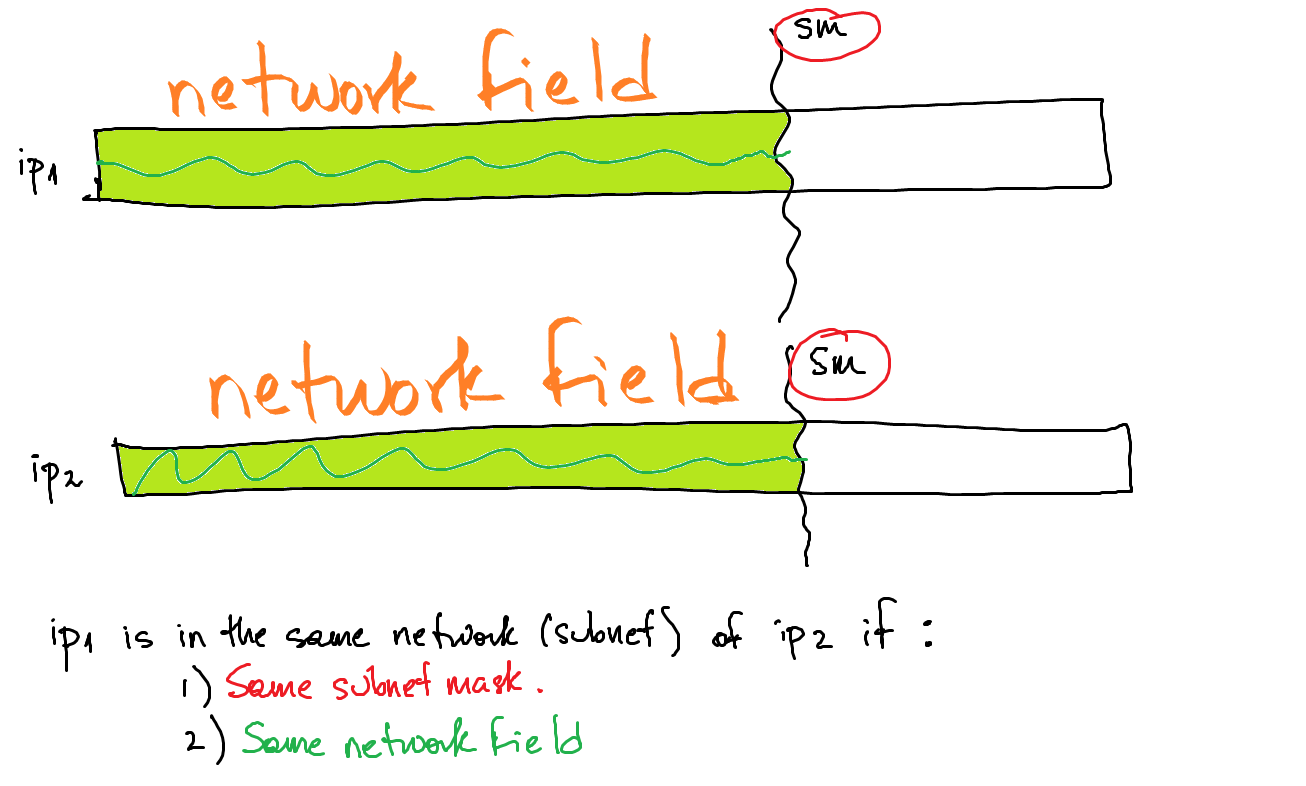 sm
network field
ip1
sm
network field
ip2
ip1 is in the same network (subnet) of ip2 if :
1) Same subnet mask.
2) Same network field